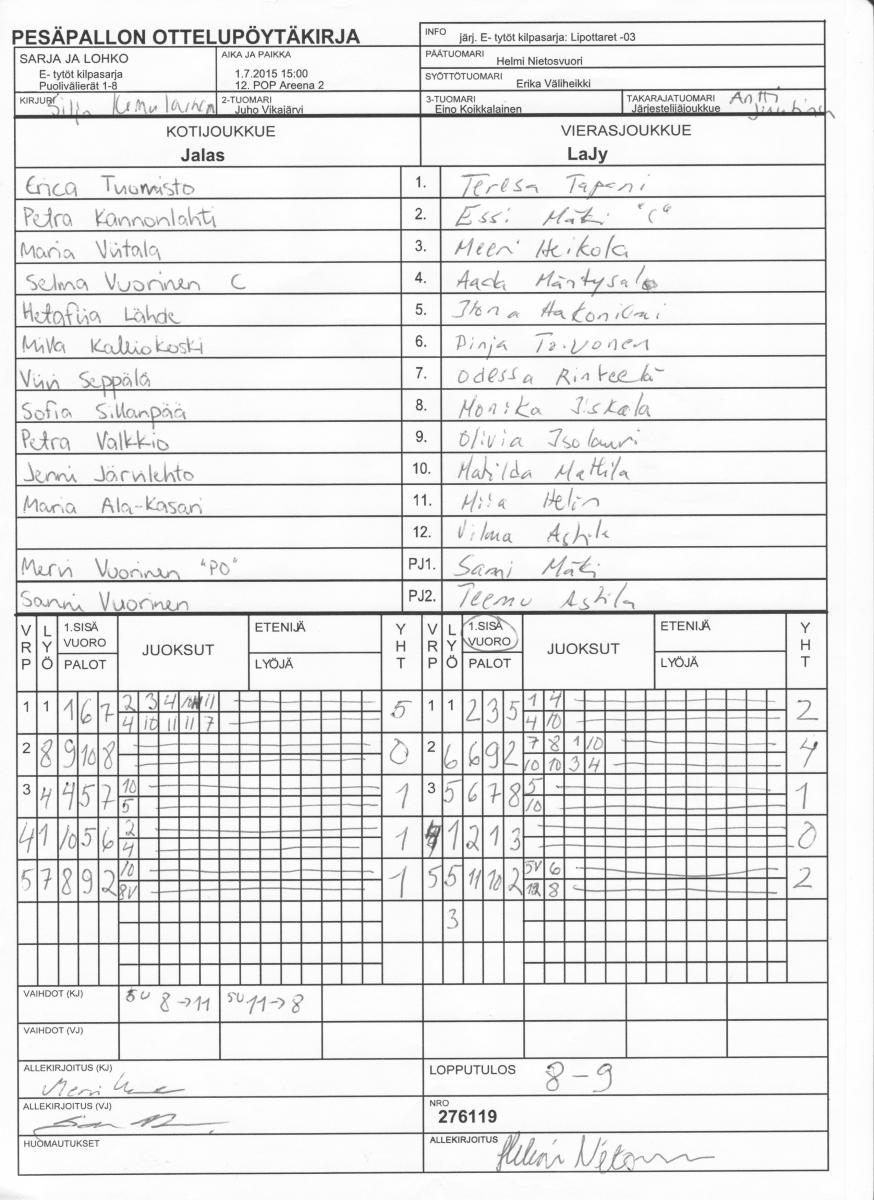 PESÄPALLON OTTELUPÖYTÄKIRJA
INFO järj. E- tytöt kilpasarja: Lipottaret -03
SARJA JA LOHKO
E- tytöt kilpasarja
Puolivälierät 1-8
AIKA JA PAIKKA
1.7.2015 15:00
12. POP Areena 2
PÄÄTUOMARI
Helmi Nietosvuori
SYÖTTÖTUOMARI
Erika Väliheikki
KIRJURI
2-TUOMARI
Juho Vikajärvi
3-TUOMARI
Eino Koikkalainen
TAKARAJATUOMARI Antti
Järjestelijäjoukkue
KOTIJOUKKUE VIERASJOUKKUE
Jalas LaJy
Erica Tuomisto 1. Teresa Tapani
Petra Kannonlahti 2. Essi Mäki "C"
Maria Viitala 3. Meeri Heikola
Selma Vuorinen C 4. Aada Mäntysalo
Lähde 5.
Milla Kalliokoski 6. Pinja Toivonen
Viivi Seppälä 7. Odessa
Sofia Sillanpää 8. Monika
Petra Valkkio 9. Olivia Isolauri
Jenni Järvilehto 10. Matilda Mattila
Maria Ala-Kasari 11. Helin
12. Vilma Astila
Mervi Vuorinen "PO" PJ1. Sami Mäki
Sanni Vuorinen PJ2. Teemu Astila
VRP LYÖ 1.SISÄ VUORO PALOT JUOKSUT ETENIJÄ LYÖJÄ YHT VRP LYÖ 1.SISÄ VUORO PALOT JUOKSUT ETENIJÄ LYÖJÄ YHT
1 1 1 6 7 2 3 4 11 5 1 1 2 3 5 1 4 2
4 10 11 11 7 4 10
2 8 9 10 8 0 2 6 6 9 2 7 8 1 10 4
10 10 3 4
3 4 4 5 7 10 1 3 5 6 7 8 5 1
5 10
4 1 10 5 6 2 1 4 1 2 1 3 0
4
5 7 8 9 2 10 1 5 5 11 10 2 5V 6 2
8V 12 8
3
VAIHDOT (KJ) 5U 8→11 5U 11→8
VAIHDOT (VJ)
ALLEKIRJOITUS (KJ)
LOPPUTULOS 8-9
ALLEKIRJOITUS (VJ)
NRO
276119
HUOMAUTUKSET
ALLEKIRJOITUS